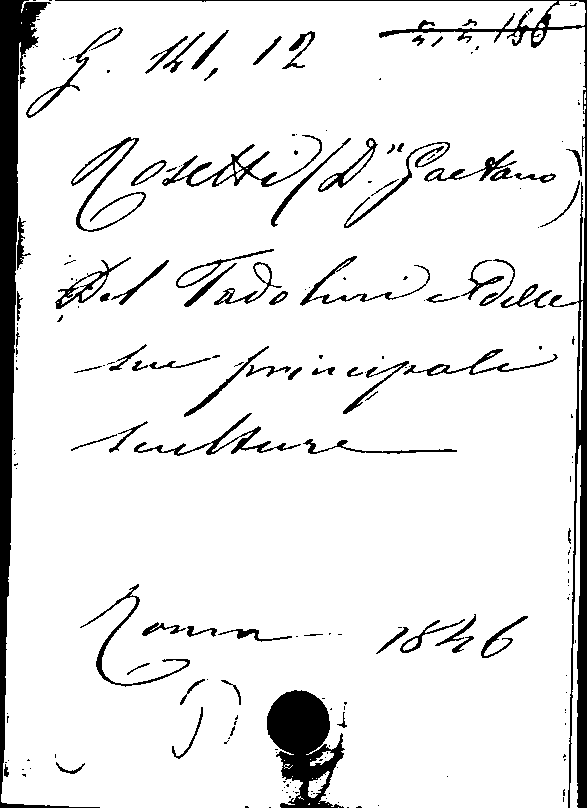 G. 141, 12
2, 2, 166
Rosetti (D.r Gaetano)
Del Tadolini e delle
sue principali
sculture
Roma 1846